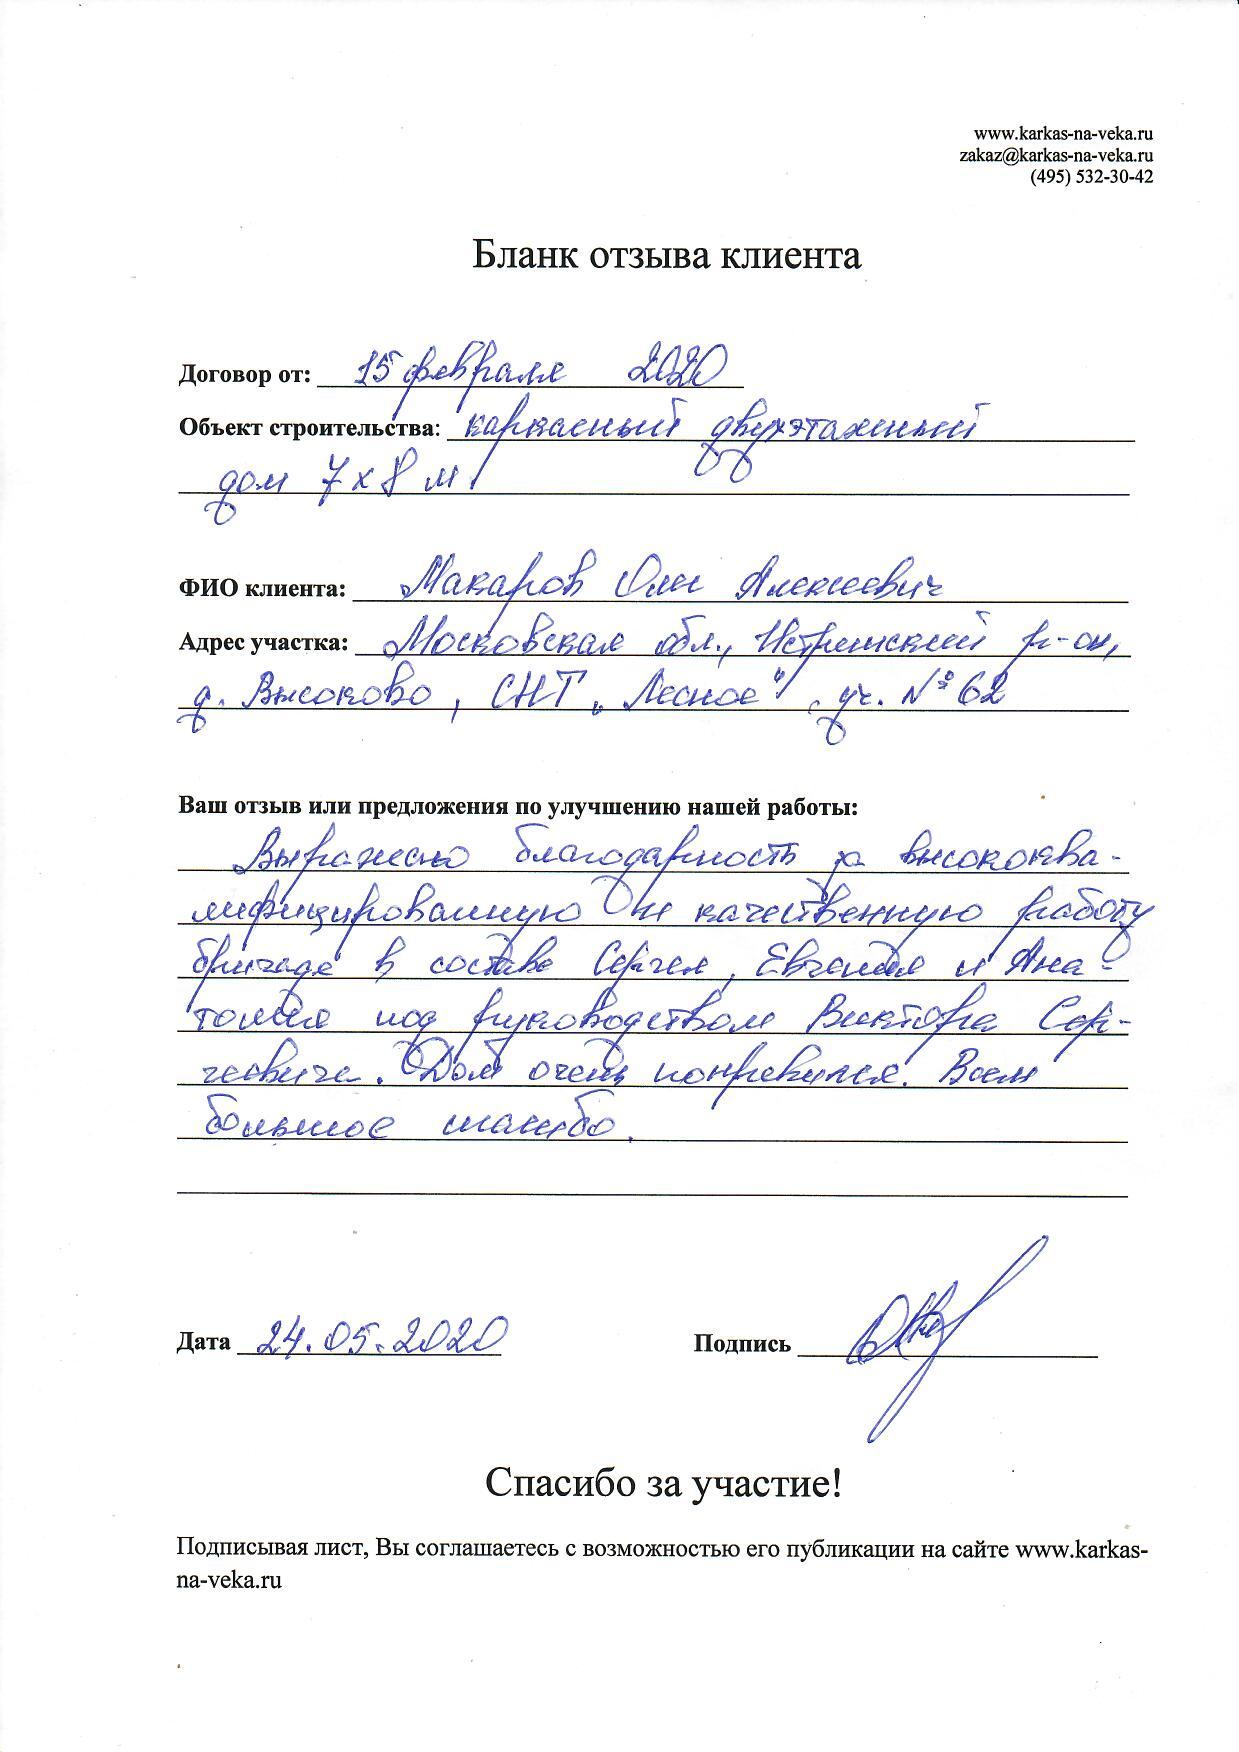 www.karkas-na-veka.ru
zakaz@karkas-na-veka.ru
(495) 532-30-42
Бланк отзыва клиента
Договор от: 15 февраля 2020
Объект строительства: каркасный двухэтажный
дом 7 х 8 м
ФИО клиента: Макаров Олег Алексеевич
Адрес участка: Московская обл., Истринский р-он,
д. Высоково, СНТ „Лесное", уч. № 62
Ваш отзыв или предложения по улучшению нашей работы:
Выражаю благодарность за высококва-
лифицированную и качественную работу
бригаде в составе Сергея, Евгения и Ана-
толия под руководством Виктора Сер-
геевича. Дом очень понравился. Всем
большое спасибо.
Дата 24.05.2020 Подпись
Спасибо за участие!
Подписывая лист, Вы соглашаетесь с возможностью его публикации на сайте www.karkas-
na-veka.ru